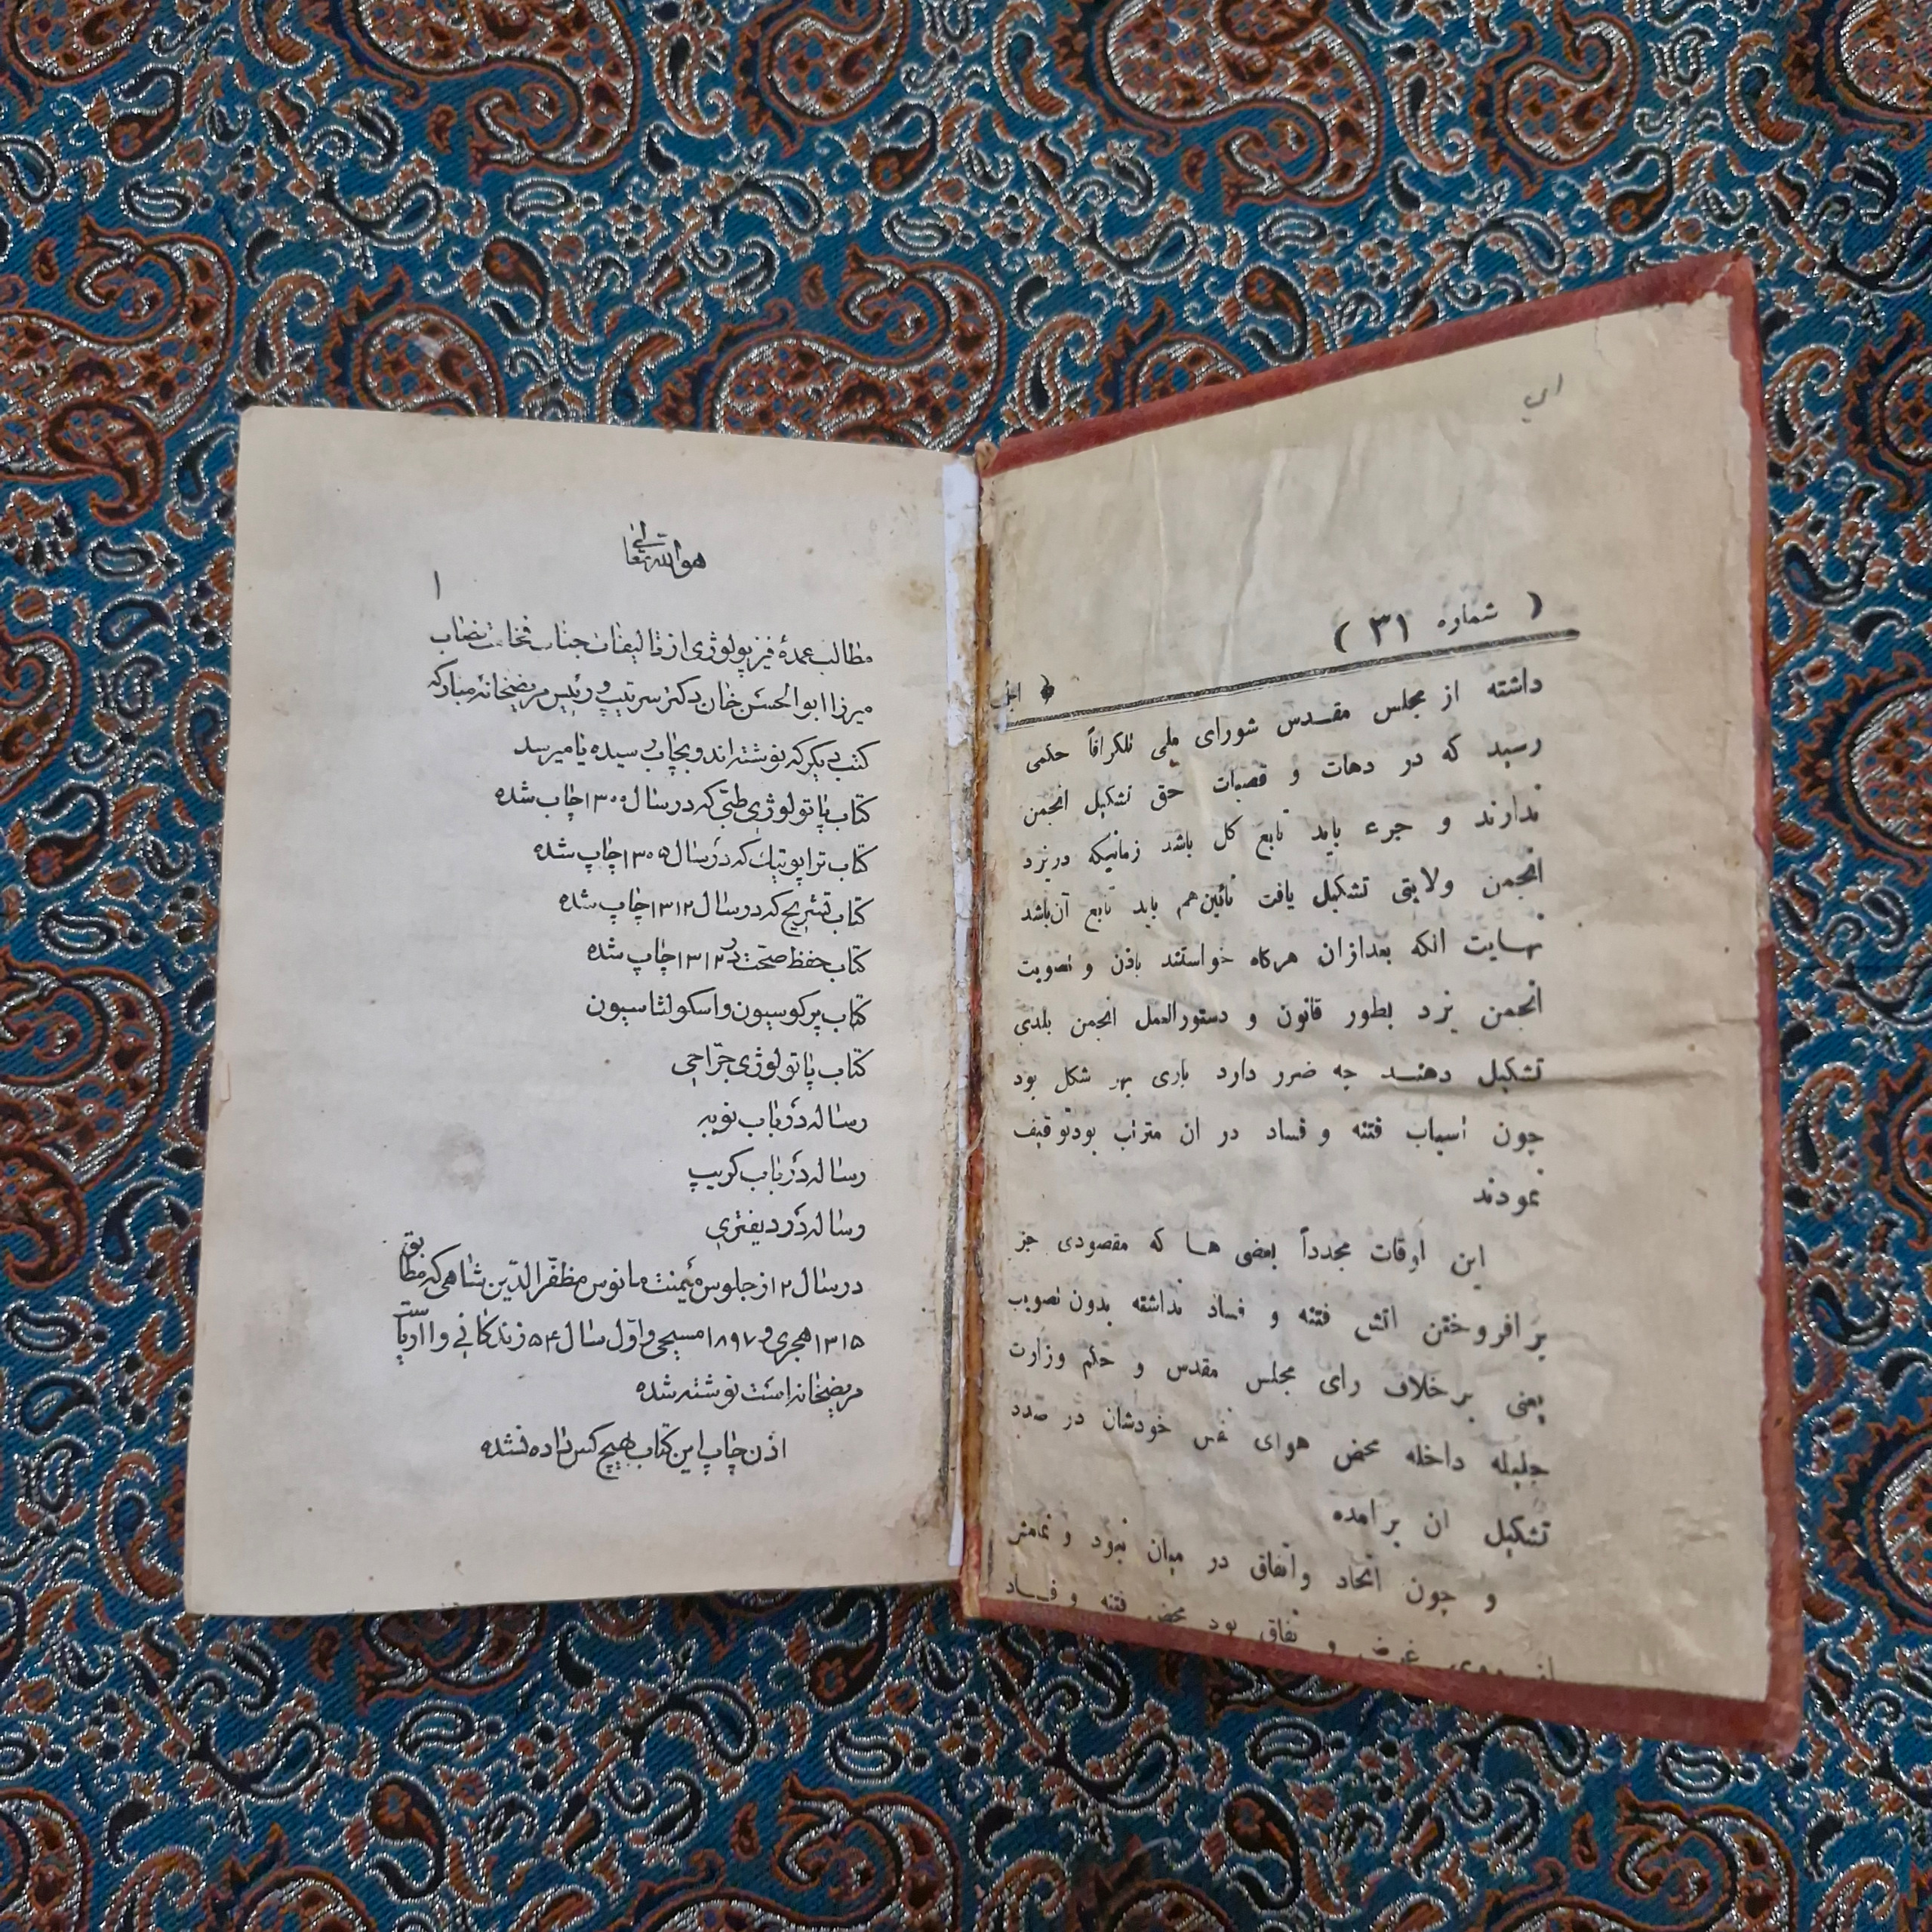 ( شماره ۳۱ )
داشته از مجلس مقدس شورای ملی تلگرافاً حکمی
رسید که در دهات و قصبات حق تشکیل انجمن
ندارند و جزء باید تابع کل باشد زمانیکه در یزد
انجمن ولایتی تشکیل یافت نائین هم باید تابع آن باشد
نهایت انکه بعدازان هرگاه خواستند باذن و تصویت
انجمن یزد بطور قانون و دستورالعمل انجمن بلدی
تشکیل دهند چه ضرر دارد باری بهر شکل بود
چون اسباب فتنه و فساد در ان مترتب بود توقیف
نمودند
این اوقات مجدداً بعضی ها که مقصودی جز
بر افروختن اتش فتنه و فساد نداشته بدون تصویب
یعنی بر خلاف رای مجلس مقدس و حکم وزارت
جلیله داخله محض هوای نفس خودشان در صدد
تشکیل ان بر امده
و چون اتحاد و اتفاق در میان نبود و تمامش
از روی غرض و نفاق بود محض فتنه و فساد
هو الله تعالی
۱
مطالب عمدهٔ فیزیولوژی از تالیفات جناب فخامت نصاب
میرزا ابوالحسن خان دکتر سرتیپ و رئیس مریضخانهٔ مبارکه
کتب دیگر که نوشته اند و بچاپ رسیده یا میرسد
کتاب پاتولوژی طبی که در سال ۱۳۰۰ چاپ شده
کتاب تراپوتیک که در سال ۱۳۰۵ چاپ شده
کتاب تشریح که در سال ۱۳۱۲ چاپ شده
کتاب حفظ صحت در ۱۳۱۲ چاپ شده
کتاب پرکوسیون و اسکولتاسیون
کتاب پاتولوژی جرّاحی
رساله در باب نوبه
رساله در باب کریپ
رساله در دیفتری
در سال ۱۲ از جلوس میمنت مانوس مظفّرالدّین شاهی که مطابق
۱۳۱۵ هجری و ۱۸۹۷ مسیحی و اوّل سال ۵۴ زندکانی و ۱۱ ریاست
مریضخانه است نوشته شده
اذن چاپ این کتاب بهیچ کس داده نشده